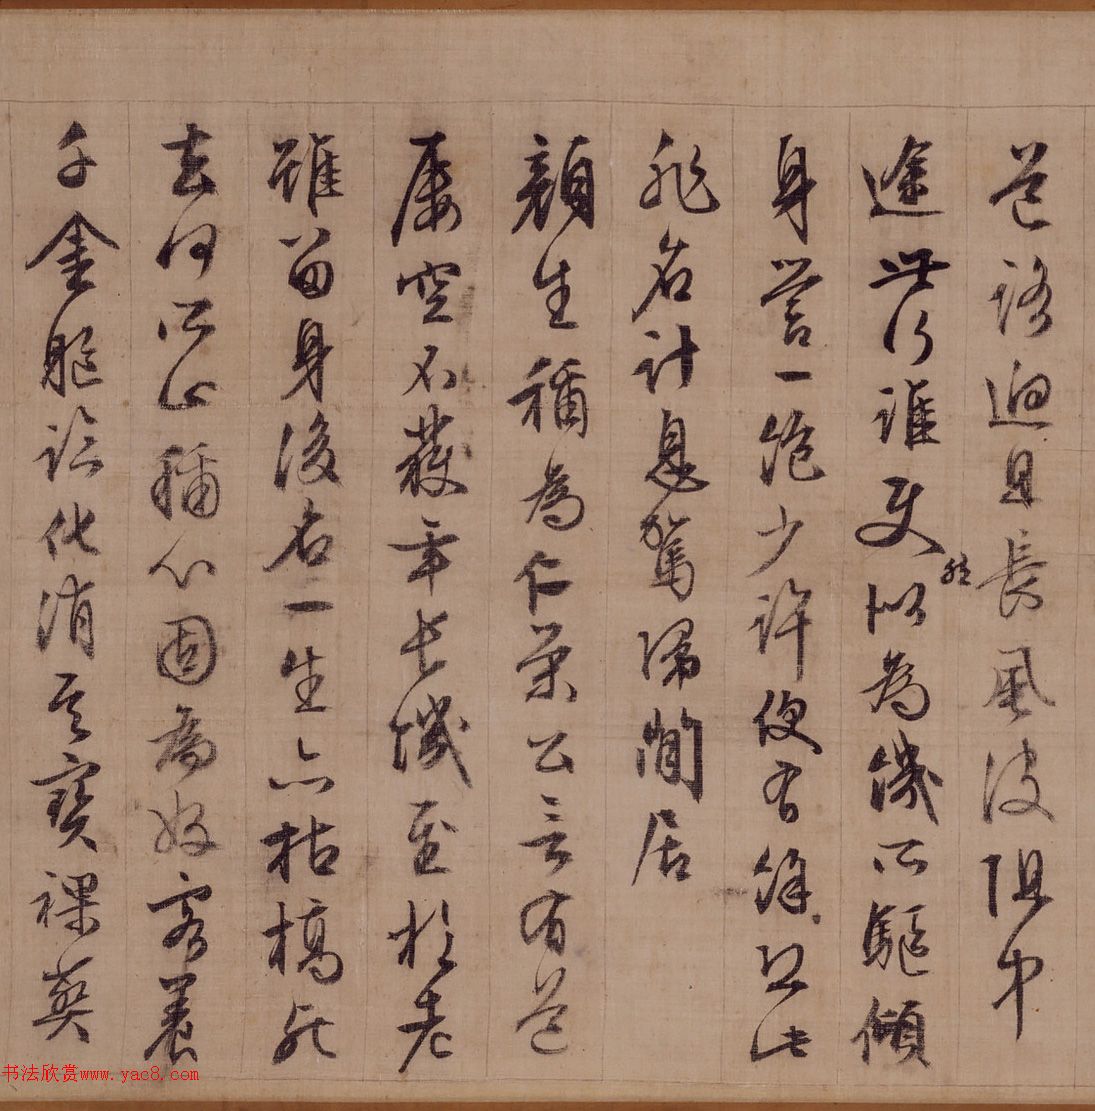 道路迥且長風波阻中
途此行誰使然似為饑所驅傾
身營一飽少許便有餘恐此
非名計息駕歸閒居
顏生稱為仁榮公言有道
屢空不獲年長饑至於老
雖留身後名一生亦枯槁死
去何所止稱心固為好客養
千金軀臨化消其寶裸葬
书法欣赏www.yac8.com